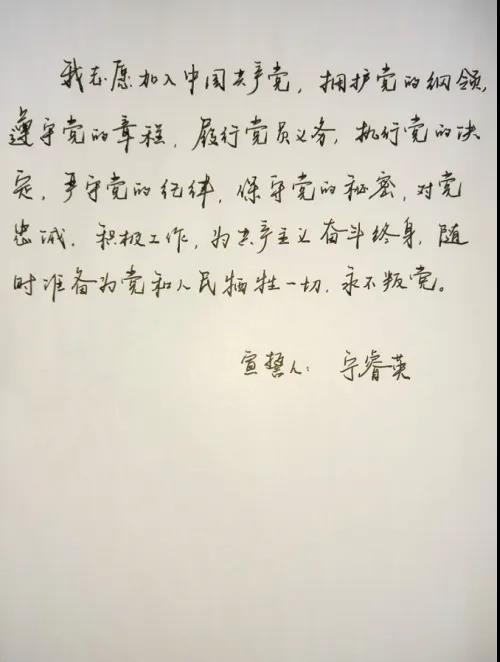 我志愿加入中国共产党，拥护党的纲领，
遵守党的章程，履行党员义务，执行党的决
定，严守党的纪律，保守党的秘密，对党
忠诚，积极工作，为共产主义奋斗终身，随
时准备为党和人民牺牲一切，永不叛党。
宣誓人：宁睿英